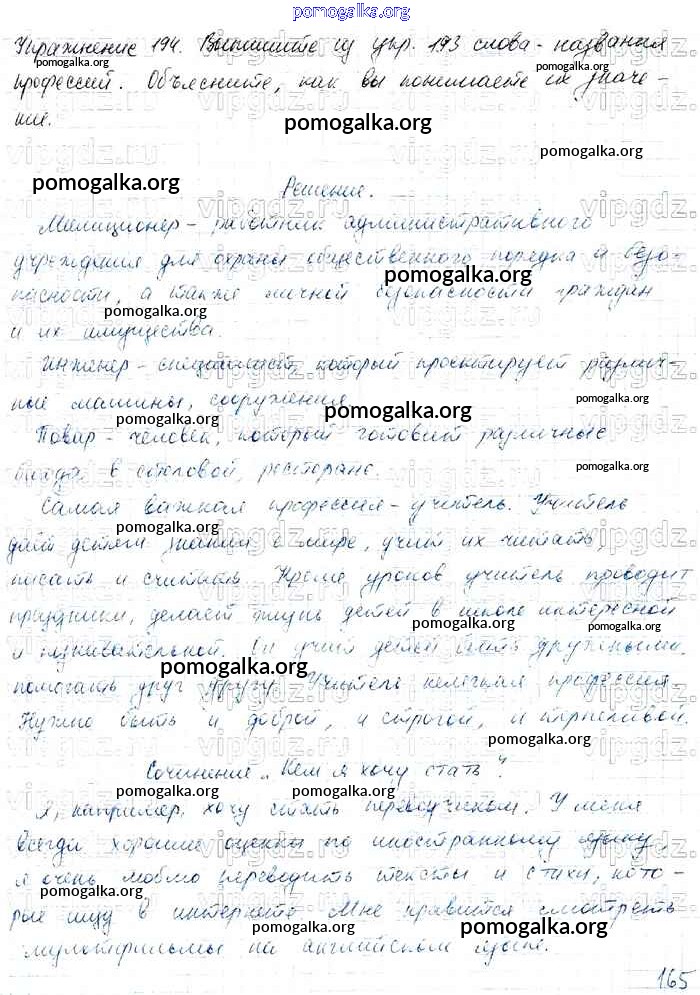 pomogalka.org
Упражнение 194. Выпишите из упр. 193 слова - названия
профессий. Объясните, как вы понимаете их значе-
ние.
pomogalka.org
Решение.
Милиционер - работник административного
учреждения для охраны общественного порядка и безо-
пасности, а также личной безопасности граждан
и их имущества.
Инженер - специалист, который проектирует различ-
ные машины, сооружения.
Повар - человек, который готовит различные
блюда в столовой, ресторане.
Самая важная профессия - учитель. Учитель
даёт детям знания о мире, учит их читать,
писать и считать. Кроме уроков учитель проводит
праздники, делает жизнь детей в школе интересной
и познавательной. Он учит детей быть дружными,
помогать друг другу. Учитель нелегкая профессия.
Нужно быть и доброй, и строгой, и терпеливой.
Сочинение „Кем я хочу стать".
Я, например, хочу стать переводчиком. У меня
всегда хорошие оценки по иностранному языку,
я очень люблю переводить тексты и стихи, кото-
рые ищу в интернете. Мне нравится смотреть
мультфильмы на английском языке.
165